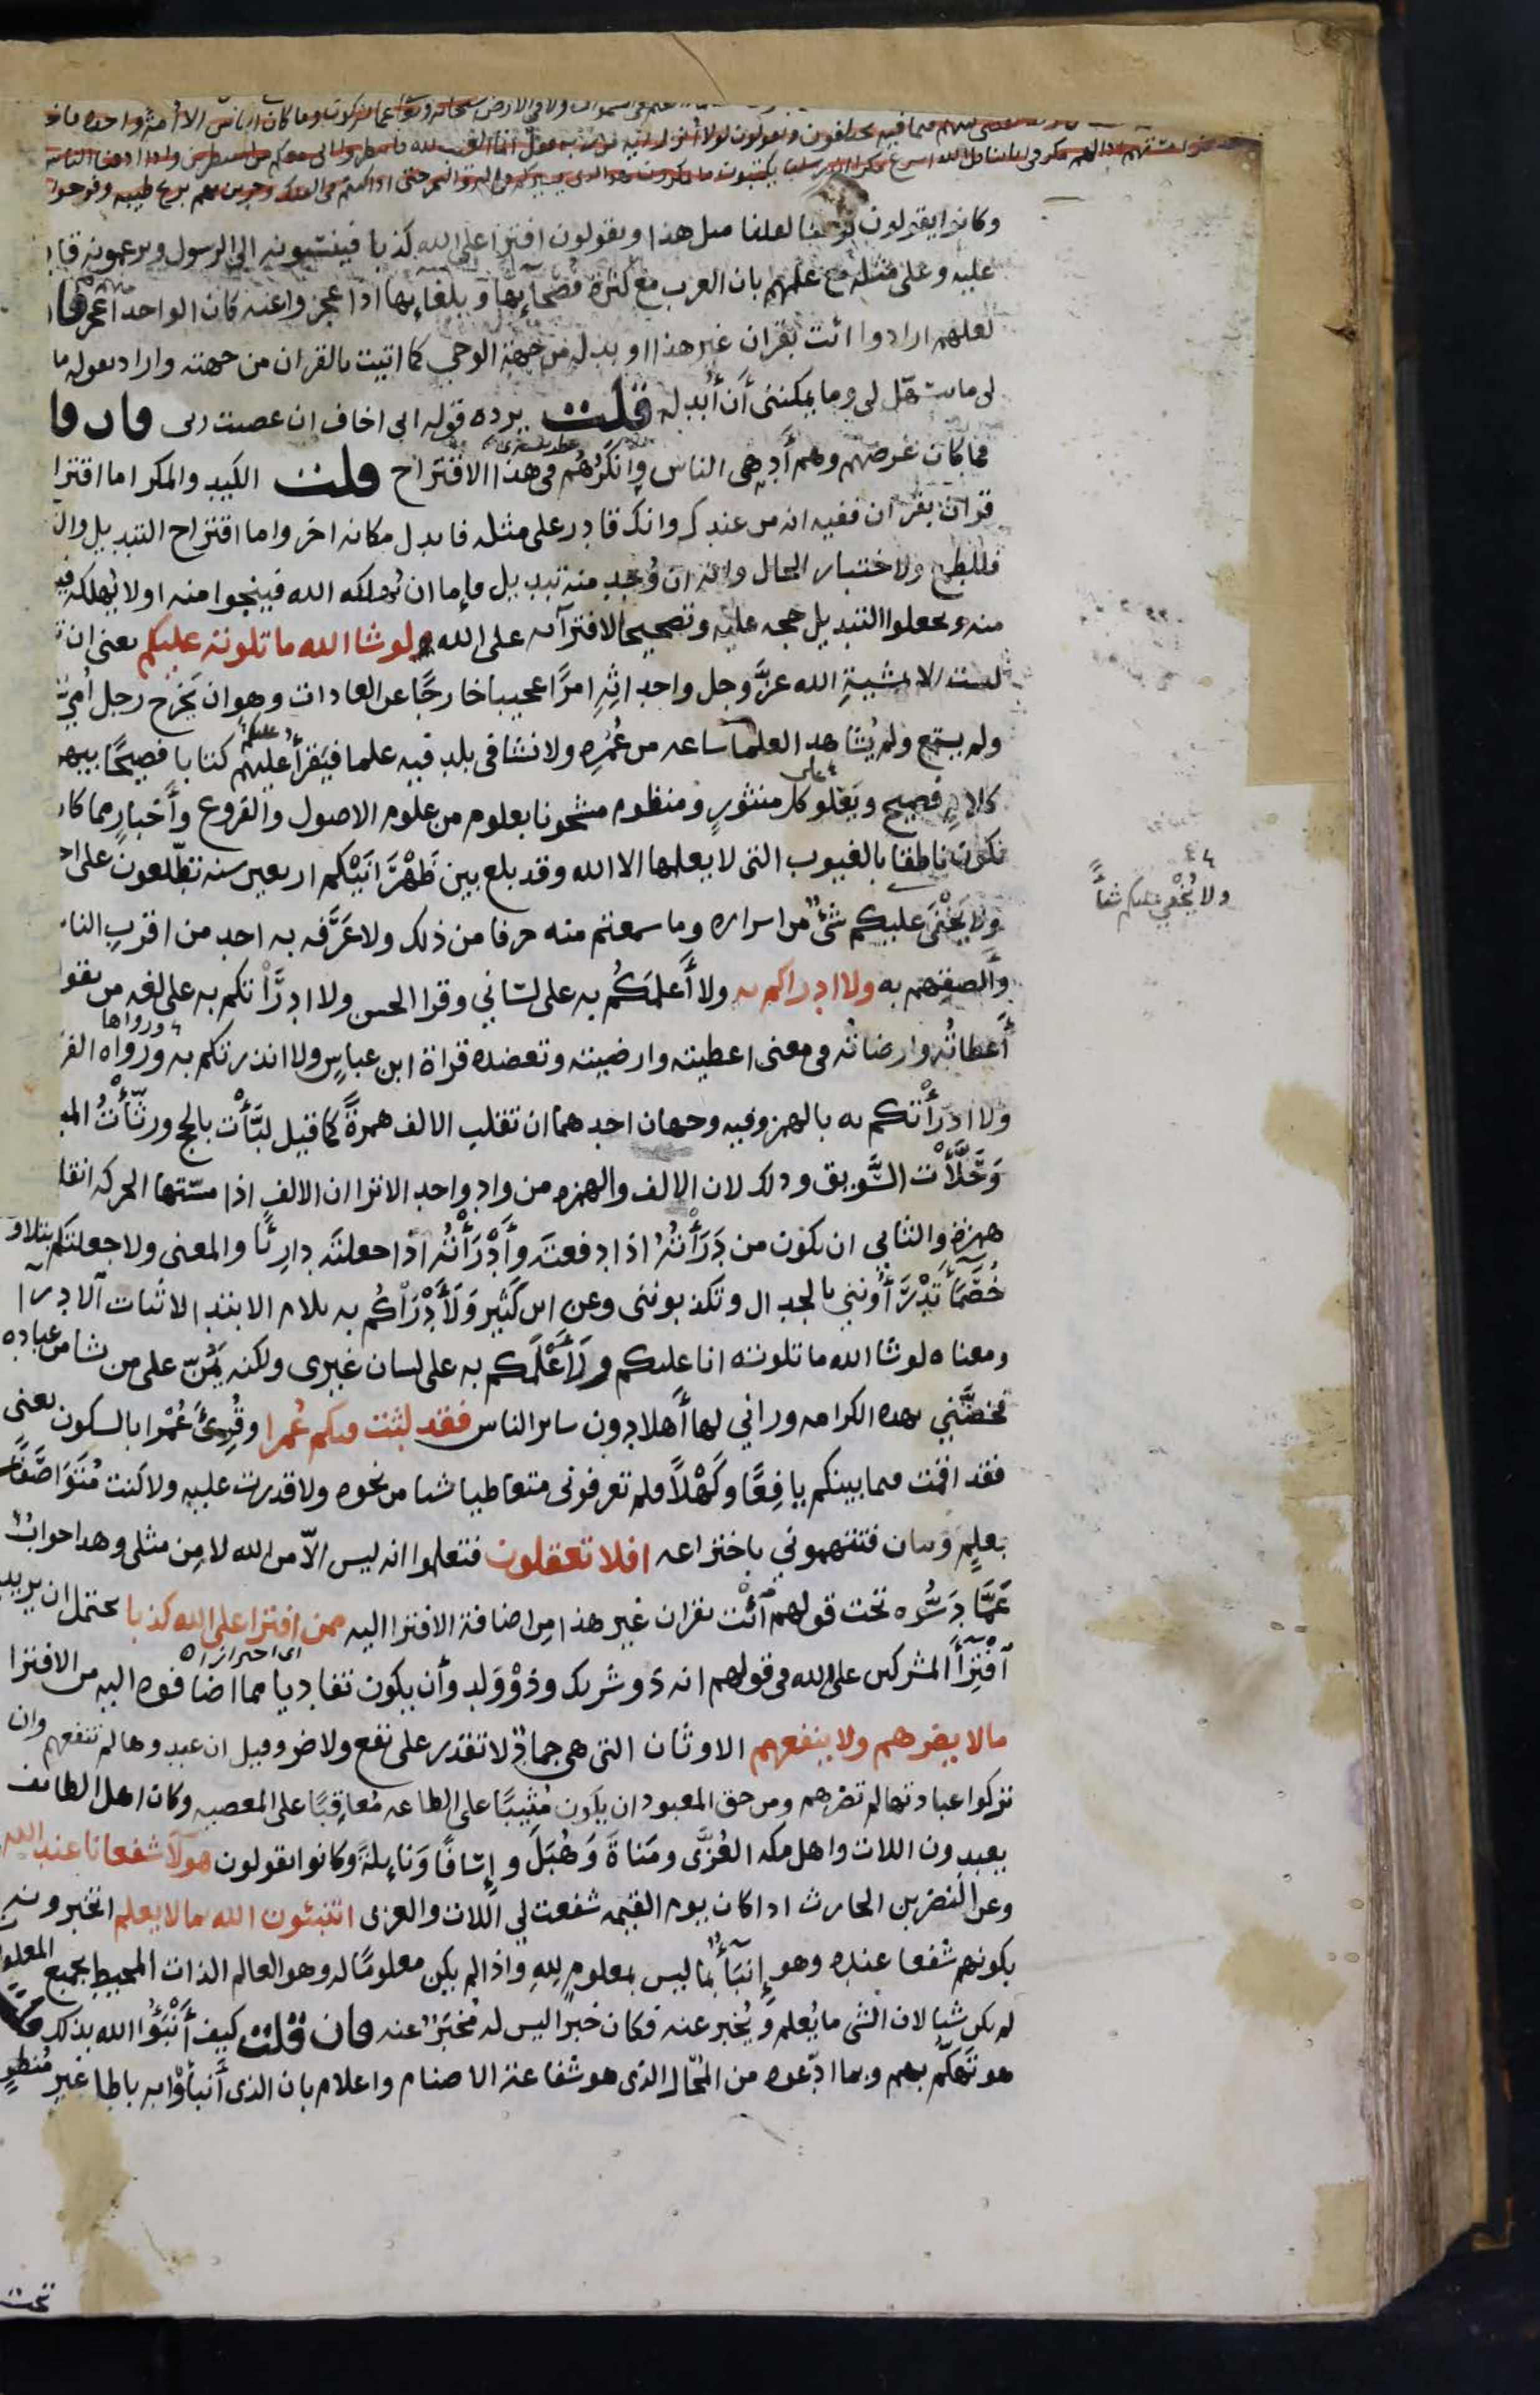 وكانوا يقولون لو نشا لقلنا مثل هذا ويقولون افترا على الله كذبا فينسبونه الى الرسول ويزعمونه قاد
عليه وعلى مثله مع علمهم بان العرب مع كثرة فصحايها وبلغايها اذا عجزوا عنه كان الواحد اعجز فان
لعلهم ارادوا ائت بقران غير هذا او بدله من جهة الوحي كما اتيت بالقران من جهته واراد بقوله ما
لى ما يتسهّل لى وما يمكننى أن أبدله قلت يرده قوله انى اخاف ان عصيت ربى فان قا
فما كان غرضهم وهم أدهى الناس وانكرهم فى هذا الاقتراح قلت الكيد والمكر اما اقترا
قران بقران ففيه انه من عندك وانك قادر على مثله فابدل مكانه اخر واما اقتراح التبديل وال
فللطمع ولاختبار الحال وانه ان وُجد منه تبديل فإما ان يُهلكه الله فينجوا منه او لا يُهلكه فيـ
منه ويجعلوا التبديل حجه عليه وتصحيحا لافترآيه على الله لو شا الله ما تلوته عليكم يعنى ان ت
ليست الا بمشيةِ الله عزّ وجل واحداثِهِ امرًا عجيبا خارجًا عن العادات وهو ان يَخرُج رجل أُمِيّ
ولم يستمع ولم يُشاهد العلما ساعه من عُمُرِه ولا نشا فى بلد فيه علما فيَقرأ عليهم كتابا فصيحًا يبهر
كلامٍ فصيح ويَعْلو كل منثورٍ ومنظوم مشحونا بعلوم من علوم الاصول والفروع وأخبار مما كان
يكون ناطقا بالغيوب التى لا يعلمها الا الله وقد بلغ بين ظَهْرَانَيْكم اربعين سنه تطّلعون على احـ
ولا يَخْفَى عليكم شئٌ من اسراره وما سمعتم منه حرفا من ذلك ولا عَرَّفه به احد من اقرب النا
ولا يُخْفي عليكم شيأً
وألصقهم به ولا ادراكم به ولا أعلمَكُم به على لسَانى وقرا الحسن ولا ادرَأتكم به على لغه من يقو
أعطاتُه وارضاتُه فى معنى اعطيته وارضيته وتعضده قراة ابن عباسٍ ولا انذرتكم به ورواه الفر
ورواها
ولا ادرأتكم به بالهمز وفيه وجهان احدهما ان تقلب الالف همزةً كما قيل لبَّأْت بالحج ورثّأْتُ الميـ
وَحَلَّأْت السَّويق وذلك لان الالف والهمزه من وادٍ واحد الا ترا ان الالف اذا مسّتها الحركه انقلـ
همزةً والثاني ان يكون من دَرَأْتُه اذا دفعتَه وأَدْرَأْتُه اذا جعلتَه دارِئًا والمعنى ولا جعلتكم بتلاو
خُصَمَآ تَدْرَؤُنني بالجدال وتكذبوننى وعن ابن كَثير ولأَدْرَاكُم به بلام الابتدا لاثبات الادرا
ومعناه لو شا الله ما تلوته انا عليكم ولأَعْلَمكم به على لسان غيرى ولكنه يَمُنّ على من يشا من عباده
فخصَّني بهذه الكرامه وراني لها أَهلا دون ساير الناس فقد لبثت فيكم عُمرا وقُرِئَ عُمْرا بالسكون يعنى
فقد اقمت فيما بينكم يافِعًا وكَهْلًا فلم تعرفونى متعاطيا شيا من نحوه ولا قدرت عليه ولا كنت مُتَوَاصفًا
بعلمٍ وبيان فتتهموني باختراعه افلا تعقلون فتعلموا انه ليس الّا من الله لا مِن مثلى وهذا جوابٌ
عَمَّا دَسُّوه تحت قولهم ائْت بقران غير هذا مِن اضافة الافترا اليه ممن افترا على الله كذبا يحتمل ان يريد
افترآ المشركين على الله فى قولهم انه ذو شريك وذوْ وَلد وأن يكون تفاديا مما اضافوه اليه من الافترا
اى احترازاه
مالا يضرهم ولا ينفعهم الاوثان التى هى جمادٌ لا تقدر على نفع ولا ضر وقيل ان عبدوها لم تنفعهم وان
تركوا عبادتها لم تضرهم ومن حق المعبود ان يكون مُثِيبًا على الطاعه مُعاقِبًا على المعصيه وكان اهل الطايف
يعبدون اللات واهل مكه العُزَّى ومَناةَ وهُبَلَ وإِسَافًا ونَايِلةً وكانوا يقولون هولآ شفعانا عند الله
وعن النضر بن الحارث اذا كان يوم القيمه شفعت لي اللات والعزى اتنبئون الله بما لا يعلم اتخبرونه
بكونهم شفعا عنده وهو إِنبآ بما ليس بمعلوم للهِ واذا لم يكن معلومًا له وهو العالم الذات المحيط بجميع المعلوما
لم يكن شيا لان الشى ما يُعلم ويُخبر عنه فكان خبرا ليس له مُخبَرٌ عنه فان قلت كيف أَنْبَؤُا الله بذلك قلت
هو تَهكّم بهم وبما ادّعوه من المُحَال الذى هو شفاعة الاصنام واعلام بان الذى أَنبأوْا به باطل غير مُنطوٍ
تحت